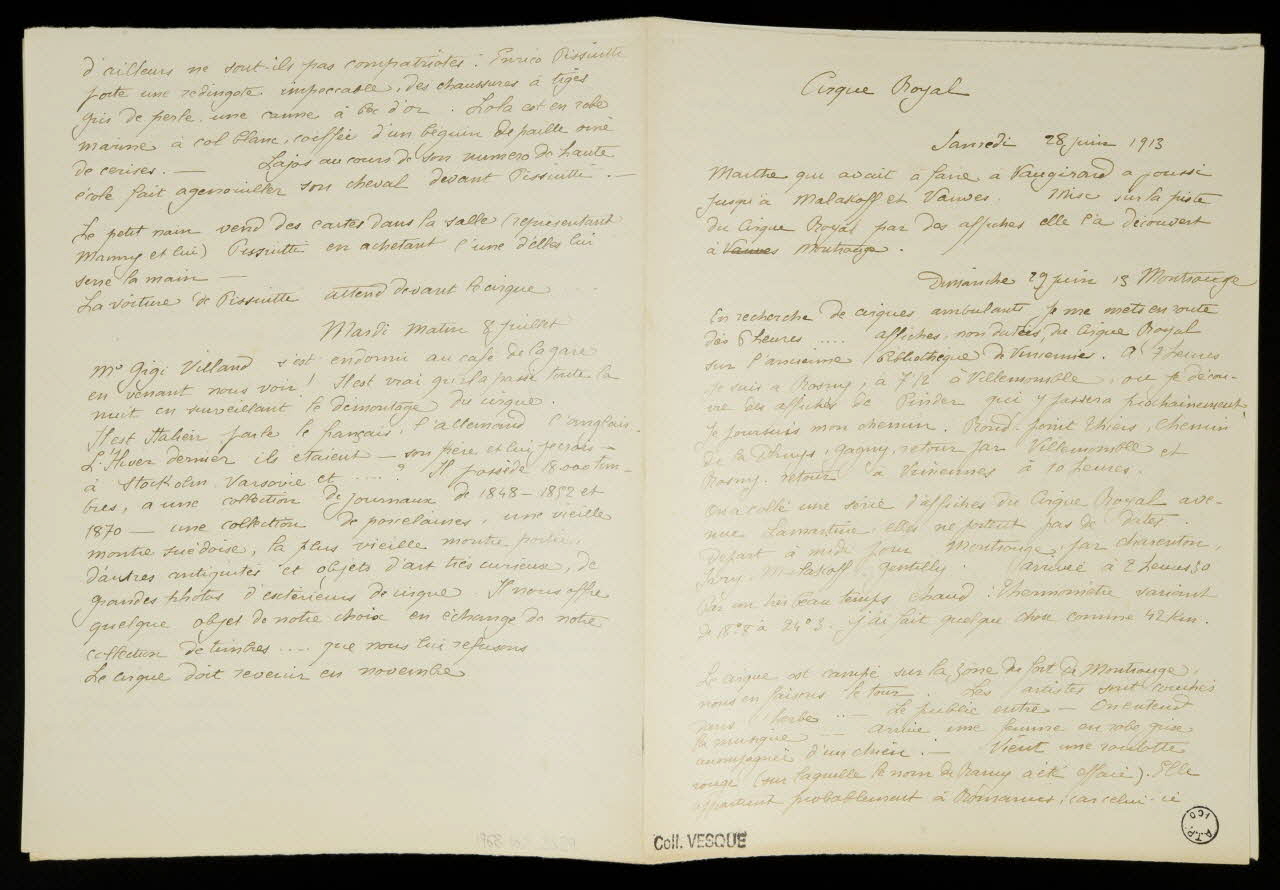 d'ailleurs ne sont-ils pas compatriotes. Enrico Pissiutti
porte une redingote impeccable, des chaussures à tiges
gris de perle, une canne à bec d'or. Lola est en robe
marine à col blanc, coiffée d'un béguin de paille orné
de cerises. — Lajos au cours de son numero de haute
école fait agenouiller son cheval devant Pissiutti. —
Le petit nain vend des cartes dans la salle (representant
Manny et lui) Pissiutti en achetant l'une d'elles lui
serre la main —
La voiture de Pissiutti attend devant le cirque ....
Mardi matin 8 juillet
Mr Gigi Villand s'est endormi au café de la gare
en venant nous voir! Il est vrai qu'il a passé toute la
nuit en surveillant le démontage du cirque.
Il est Italien parle le français, l'allemand l'anglais.
L'Hiver dernier ils étaient — son frère et lui
à Stockolm Varsovie et ..... ? Il possède 18000 tim-
bres, a une collection de journaux de 1848-1852 et
1870 — une collection de porcelaines, une vieille
montre suédoise, la plus vieille montre
d'autres antiquités et objets d'art très curieux, de
grandes photos d'extérieurs de cirque. Il nous offre
quelque objet de notre choix en échange de notre
collection de timbres .... que nous lui refusons
Le cirque doit revenir en novembre
Cirque Royal
Samedi 28 juin 1913
Marthe qui avait à faire à Vaugirard a poussé
jusqu'à Malakoff et Vanves. Mise sur la piste
du Cirque Royal par des affiches elle l'a découvert
à Vanves Montrouge.
Dimanche 29 juin 13 Montrouge
En recherche de cirques ambulants, je me mets en route
dès 6 heures ..... affiches, non datées, du Cirque Royal
sur l'ancienne Bibliothèque de Vincennes. A 7 heures
je suis à Rosny, à 7 1/2 à Villemomble, où je décou-
vre des affiches de Pinder qui y passera prochainement,
Je poursuis mon chemin. Rond-point Thiers, chemin
de la Dhuys, Gagny, retour par Villemomble et
Rosny. retour à Vincennes à 10 heures.
On a collé une série d'affiches du Cirque Royal ave-
nue Lamartine, elles ne portent pas de dates.
Départ à midi pour Montrouge, par Charenton,
Ivry, Malakoff, Gentilly. (arrivée à 2 heures 30
Par un très beau temps chaud: Thermomètre variant
de 18°8 à 24°3. J'ai fait quelque chose comme 42 km.
Le cirque est campé sur la zône du fort de Montrouge,
nous en faisons le tour. Les artistes sont couchés
dans l'herbe ... — Le public entre — On entend
la musique — arrive une femme en robe grise
accompagnée d'un chien. — Vient une roulotte
rouge (sur laquelle le nom de Rancy a été effacé). Elle
appartient probablement à Romanus, car celui-ci
Coll. VESQUE
A.T.P.
ICO